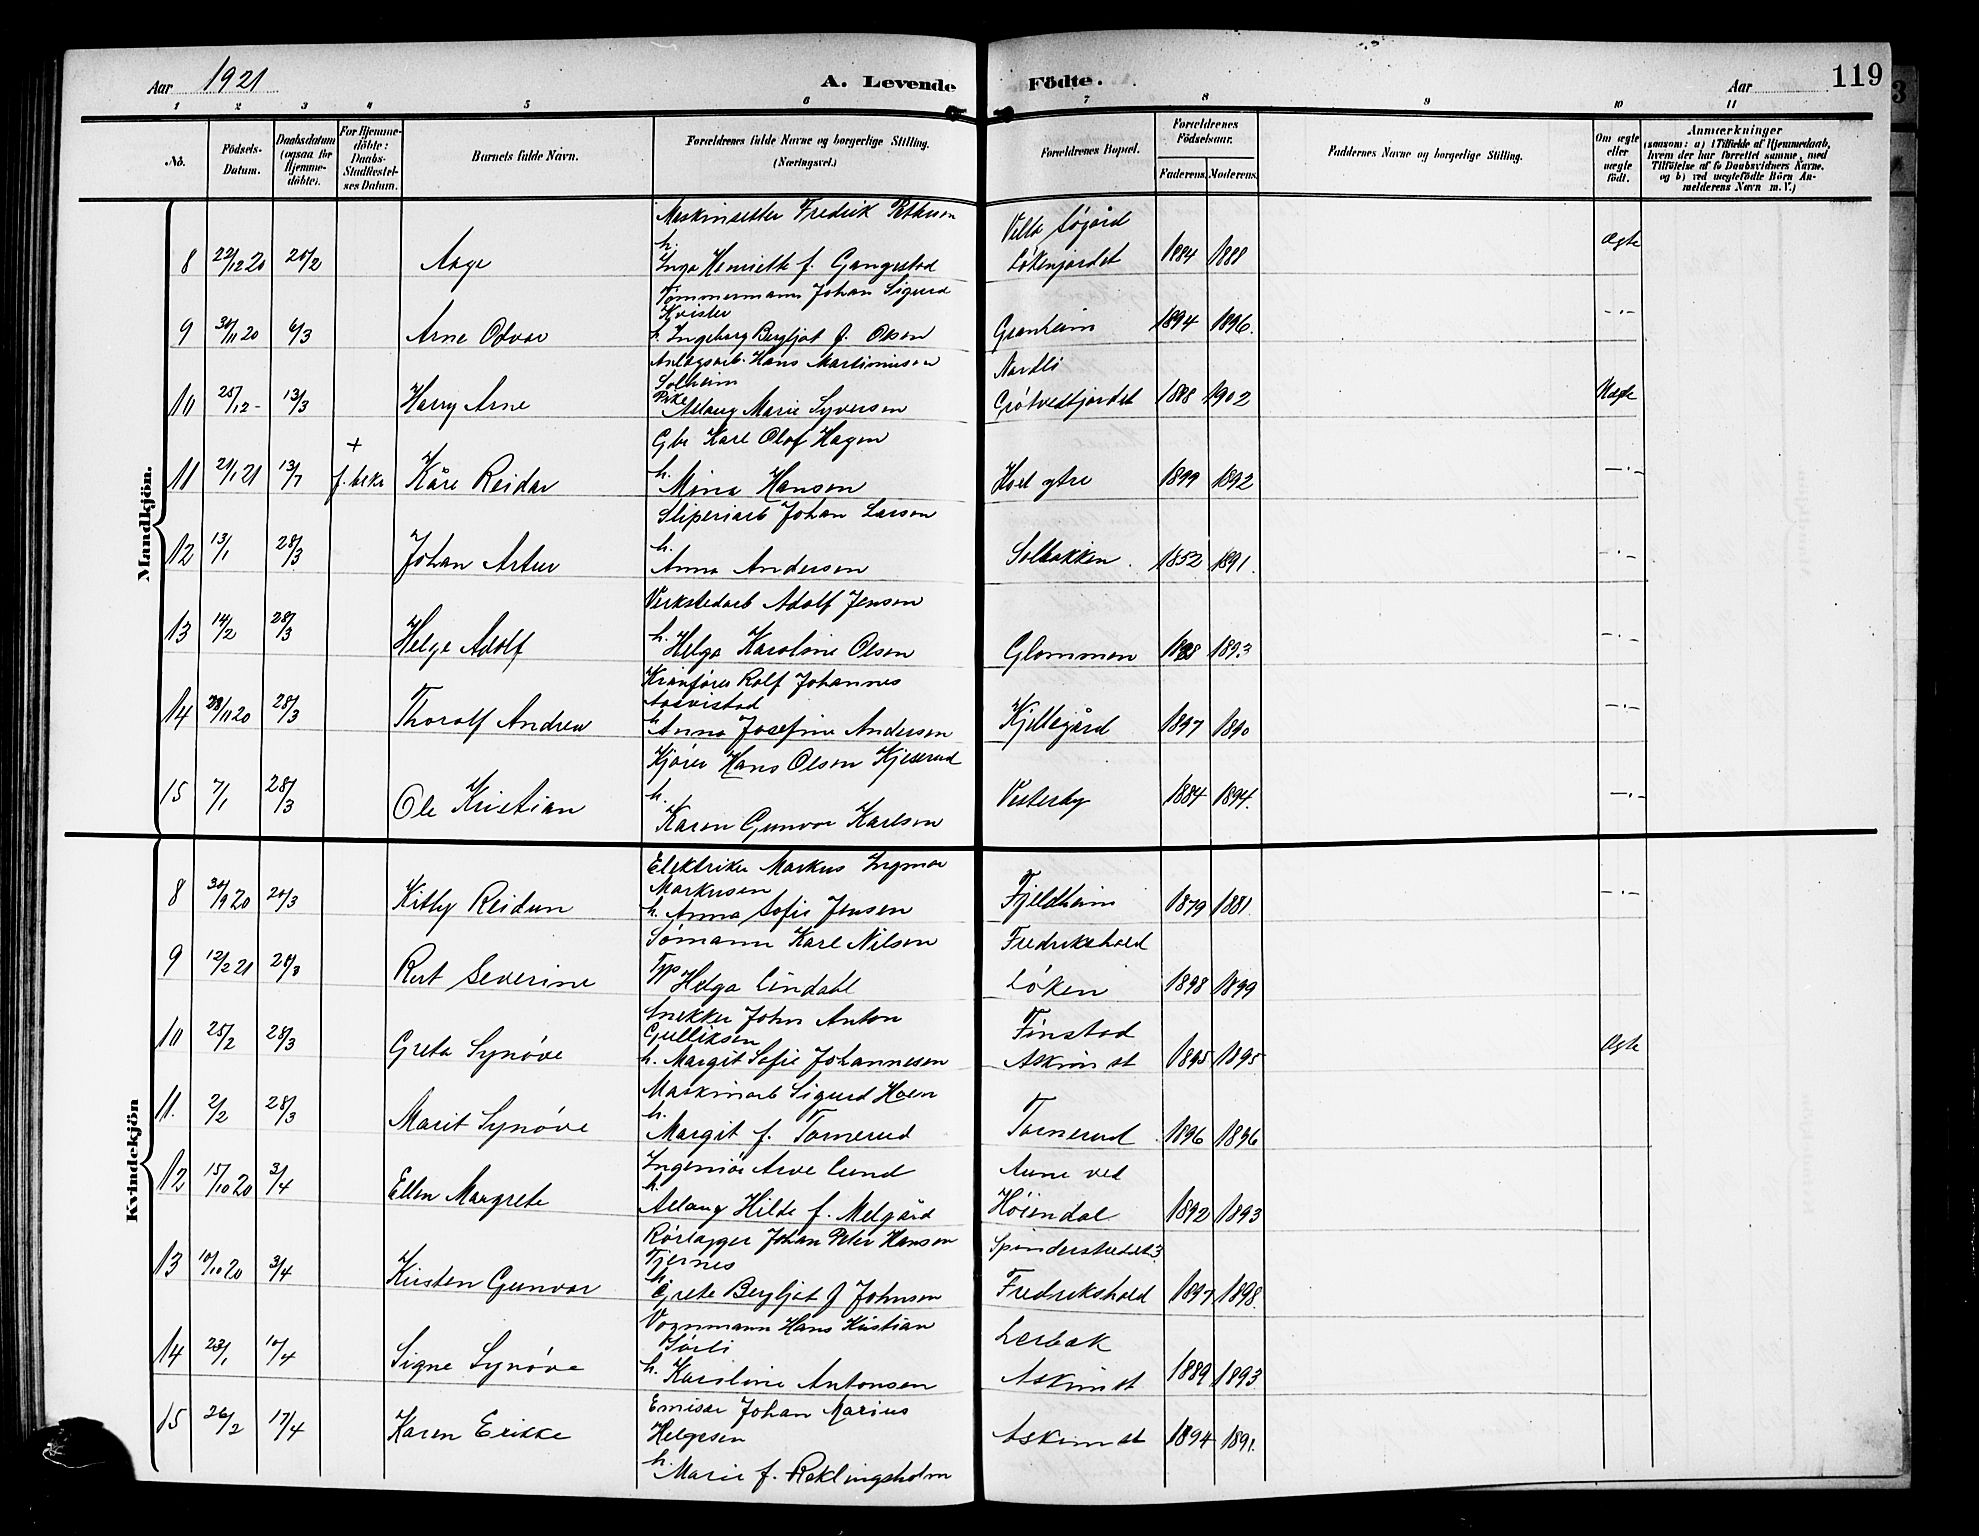 Aar 1921 A. Levende Födte. Aar 119
1 2 3 4 5 6 7 8 9 10 11
No. Födsels-Datum. Daabsdatum (ogsaa for Hjemme-döbte). For Hjemme-döbte: Daabs-Stadfæstel-ses Datum. Barnets fulde Navn. Forældrenes fulde Navne og borgerlige Stilling. (Næringsvei.) Forældrenes Bopæl. Forældrenes Födselsaar. Faderens. Moderens. Faddernes Navne og borgerlige Stilling. Om ægte eller uægte födt. Anmærkninger (saasom: a) i Tilfælde af Hjemmedaab, hvem der har forrettet samme, med Tilföielse af to Daabsvidners Navne, og b) ved uægtefödte Börn An-melderens Navn m. V.)
Mandkjön.
Maskinsetter Fredrik Pettersen Villa Søgård
8 29/12 20 20/2 Aage h. Inga Henriette f. Gangestad Løkenjordet 1884 1888 Ægte
Tømmermann Johan Sigurd
Kvisler
9 30/11 20 6/3 Arne Odvar h. Ingeborg Bergljot f. Olsen Granheim 1894 1896. -"-
Anlægsarb. Hans Martinius Nordli
Solheim
10 25/12 - 13/3 Harry Arne Pike Aslaug Marie Syversen Grøtvedtjordet 1888 1902 Uægte
+ Gbr Karl Olof Hagen
11 21/1 21 13/7 f. kirke Kåre Reidar h. Mina Hansen Hoel ytre 1899 1892 -"-
Sliperiarb Johan Larsen
12 13/1 28/3 Johan Artur h. Anna Andersen Solbakken 1852 1891. -"-
Verkstedarb Adolf Jensen
13 14/2 28/3 Helge Adolf h. Helga Karoline Olsen Glommen 1893 -"-
Kranfører Rolf Johannes
14 11 20 28/3 Thorolf Andreas h. Anna Josefine Andersen Kjellegård 1897 1890 -"-
Kjører Hans Olsen Kjeserud
15 7/1 28/3 Ole Kristian h. Karen Gunvor Karlsen Vesterby 1884 1894. -"-
Kvindekjön
Elektriker Markus Ingmar
Markusen
8 30/9 20 20/3 Kitty Reidun h. Anna Sofie Jensen Fjeldheim 1879 1881. -"-
Sømann Karl Nilsen Fredrikshald
9 12/2 21 28/3 Rut Severine Tjp Helga Lindahl Løken 1898 1899
Snekker John Anton Finstad
Gulliksen
10 25/2 28/3 Greta Synøve h. Margit Sofie Johannesen Askim st 1895 1895 Ægte
Maskinarb Sigurd Hoen
11. 2/2 28/3 Marit Synøve h. Margit f. Tornerud Tornerud 1896 1896
Ingeniør Arve Lund Aune ved
12 15/10 20 3/4 Ellen Margrete h. Aslaug Hilde f. Melgård Høiendal 1892 1893
Rørlægger Johan Peter Hansen
Tjernes
13 10/10 20 3/4 Kirsten Gunvor h. Grete Bergljot f Johnsen Fredrikshald 1897 1898.
Vognmann Hans Kristian Lerbak
Sørli
14 23/1 10/4 Signe Synøve h. Karoline Antonsen Askim st 1889 1893
Emisær Johan Marius
Helgesen
15 26/2 17/4 Karen Erikke h. Marie f. Reklingsholm Askim st 1894 1891.